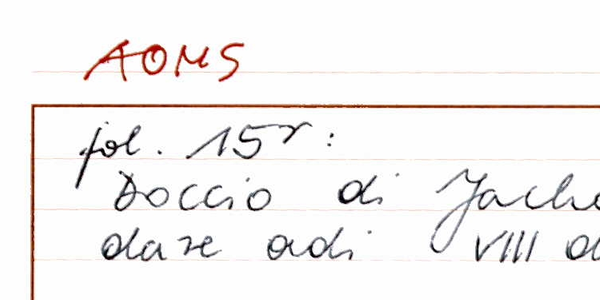 AOMS
fol. 15r:
Doccio di
dare adi VIII